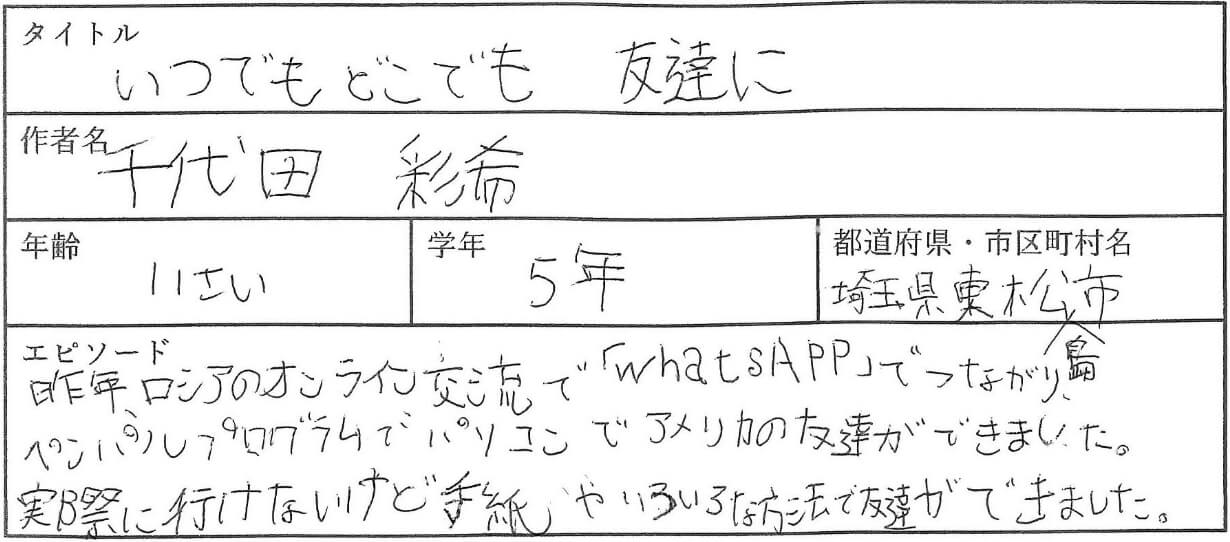 タイトル
いつでもどこでも 友達に
作者名
千代田 彩希
年齢
11さい
学年
5年
都道府県・市区町村名
埼玉県東松島市
エピソード
昨年、ロシアのオンライン交流で「whatsAPP」でつながり、
ペンパルプログラムでパソコンでアメリカの友達ができました。
実際に行けないけど手紙やいろいろな方法で友達ができました。